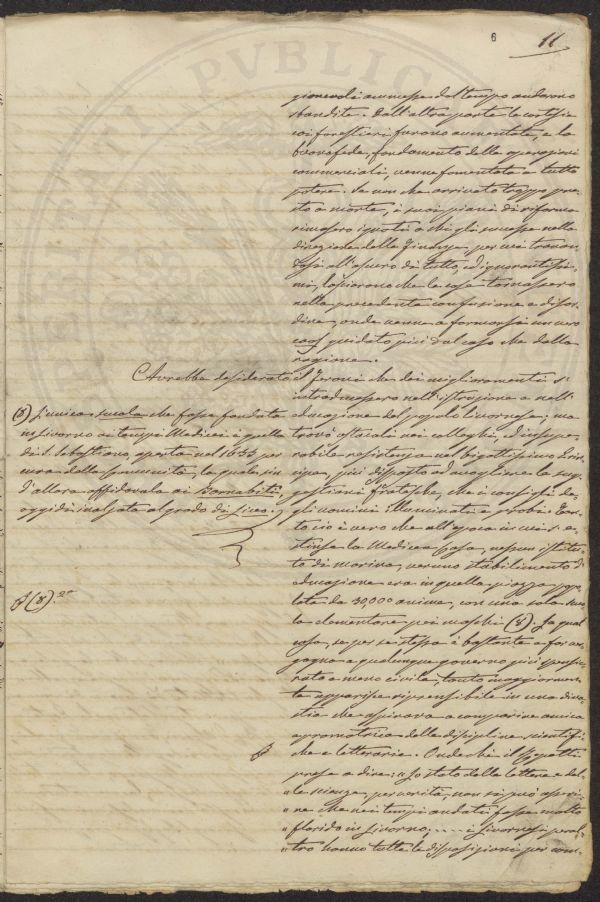 6
11
gionevoli ammesse dal tempo andarono
sbandite. Dall'altra parte le cortesie
coi forestieri furono aumentate, e la
buona fede, fondamento delle operazioni
commerciali, venne fomentata a tutto
potere. Se non che arrivato troppo pre-
sto a morte, i suoi piani di riforma
rimasero ignoti a chi gli successe nella
direzione delle Finanze, per cui trovan-
dosi all'oscuro di tutto, ed ignorantissi-
mi, lasciarono che le cose tornassero
nella precedente confusione e disor-
dine, onde venne a formarsi un vero
caos guidato più dal caso che dalla
ragione.
Avrebbe desiderato il Feroni che dei miglioramenti s'
introducessero nell'istruzione e nell'
educazione del popolo livornese; ma
trovò ostacoli nei colleghi, ed insupe-
rabile resistenza nel bigottissimo Prin-
cipe, più disposto ad accogliere le sug-
gestioni fratesche, che i consigli de-
gli uomini illuminati e probi. Tan-
to ciò è vero che all'epoca in cui s'e-
stinse la Medicea Casa, nessun istitu-
to di marina, veruno stabilimento di
educazione era in quella piazza popo-
lata da 30,000 anime, con una sola scuo-
la elementare pei maschi (8). La qual
cosa, se per se stessa è bastante a far ver-
gogna a qualunque governo più spensie-
rato e meno civile, tanto maggiormen-
te apparisce riprensibile in una dina-
stia che aspirava a comparire amica
e promotrice delle discipline scientifi-
che e letterarie. Ondechè il
prese a dire: "Lo stato delle lettere e del-
"le scienze, per verità, non si può asseri-
"re che nei tempi andati fosse molto
"florido in Livorno; ..... i Livornesi peral-
"tro hanno tutte le disposizioni per com-
(8) L'unica scuola che fosse fondata
in Livorno ai tempi Medicei è quella
di S. Sebastiano aperta nel 1633 per
cura della Comunità, la quale sin
d'allora affidavala ai Barnabiti,
oggidì inalzata al grado di Liceo.
(8).